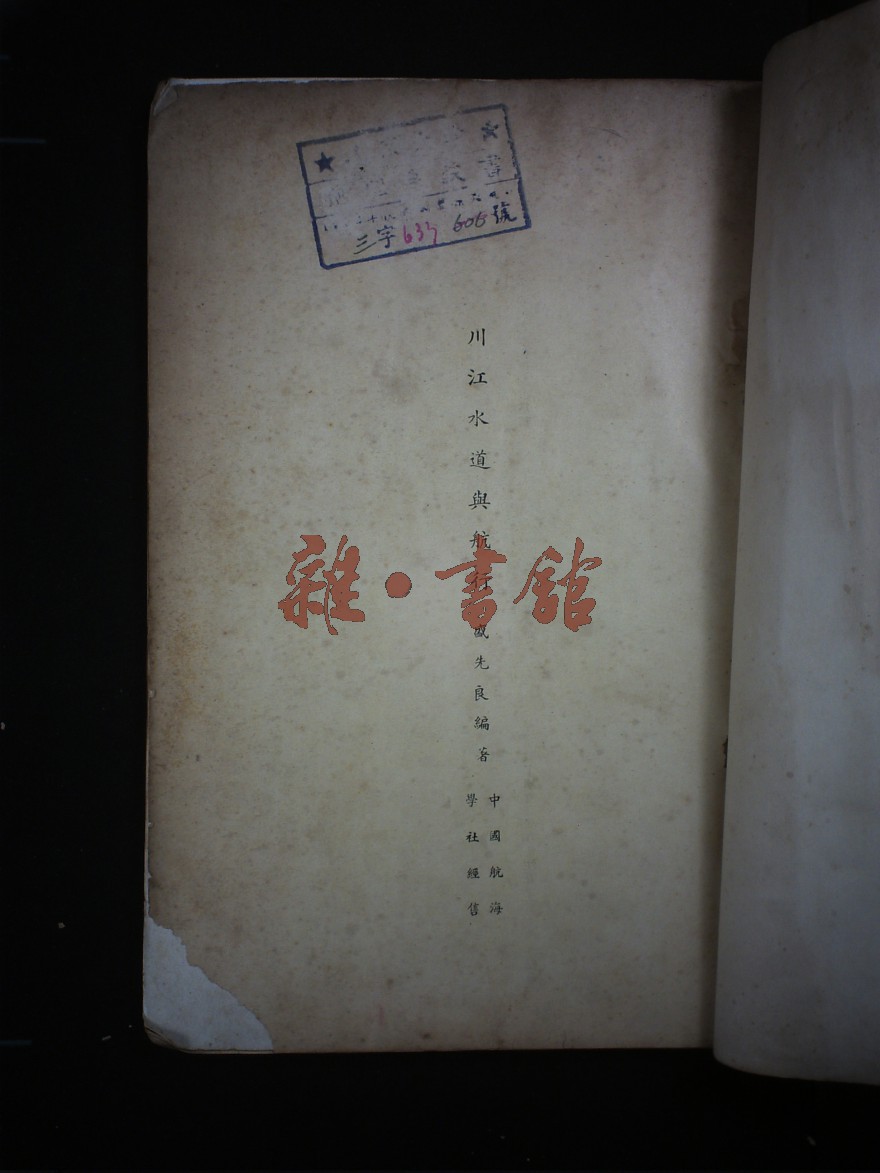 三字637 606號
川江水道與航行
盛先良編著
中國航海
學社經售
雜·書館